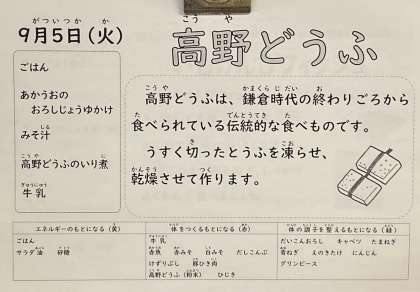 がついつか か
9月5日(火)
こう や
高野どうふ
ごはん
あかうおの
おろしじょうゆかけ
みそ汁
高野どうふのいり煮
牛乳
高野どうふは、鎌倉時代の終わりごろから
食べられている伝統的な食べものです。
うすく切ったとうふを凍らせ、
乾燥させて作ります。
エネルギーのもとになる(黄)
ごはん
サラダ油 砂糖
体をつくるもとになる(赤)
牛乳
赤魚 赤みそ 白みそ だしこんぶ
けずりぶし 豚ひき肉
高野どうふ(粉末) ひじき
体の調子を整えるもとになる(緑)
だいこんおろし キャベツ たまねぎ
青ねぎ えのきたけ にんじん
グリンピース